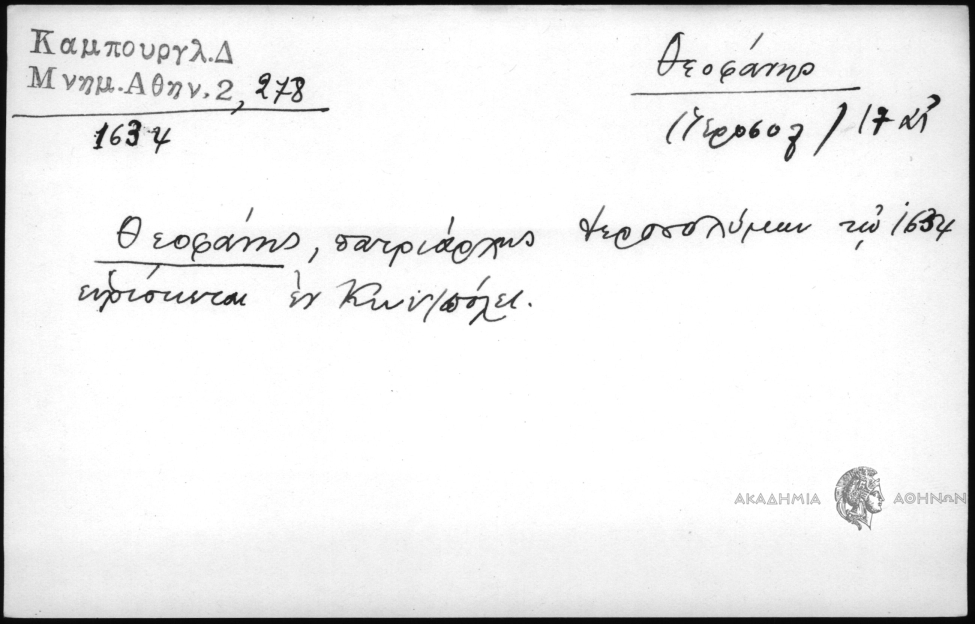 Καμπουργλ.Δ
Μνημ.Αθην.2, 278
1634
Θεοφάνης
(Ἱεροσολ) 17 αἰ
Θεοφάνης, πατριάρχης Ἱεροσολύμων τῷ 1634
εὑρίσκεται ἐν Κων/πόλει.
ΑΚΑΔΗΜΙΑ ΑΘΗΝΩΝ